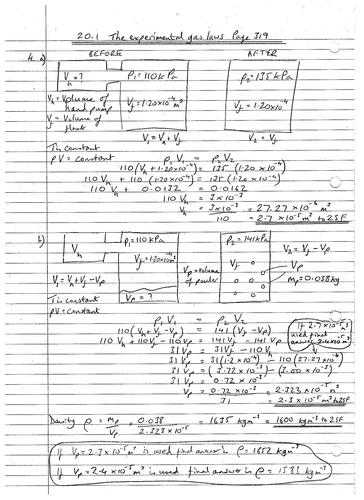 20.1 The experimental gas laws Page 319
BEFORE AFTER
4. a)
V_h = ? p₁ = 110 kPa p₂ = 135 kPa
V_h = Volume of hand pump V_f = 1.20x10⁻⁴ m³ V_f = 1.20x10⁻⁴
V_f = Volume of flask
V₁ = V_h + V_f V₂ = V_f
T is constant
pV = constant p₁V₁ = p₂V₂
110(V_h + 1.20x10⁻⁴) = 135 (1.20 x 10⁻⁴)
110 V_h + 110 (1.20x10⁻⁴) = 135 (1.20 x 10⁻⁴)
110 V_h + 0.0132 = 0.0162
110 V_h = 3x10⁻³
V_h = 3x10⁻³ / 110 = 27.27 x10⁻⁶ m³
= 2.7 x10⁻⁵ m³ to 2SF
b)
p₁ = 110 kPa p₂ = 141 kPa
V_h V_f = 1.20x10⁻⁴ m³ V_f V₂ = V_f - V_p
V_p = volume of powder V_p
m_p = 0.038 kg
V₁ = V_h + V_f - V_p V_p = ?
T is constant
pV = constant
p₁V₁ = p₂V₂
110(V_h + V_f - V_p) = 141 (V_f - V_p)
110V_h + 110V_f - 110V_p = 141V_f - 141V_p
31V_p = 31V_f - 110V_h
31V_p = 31(1.2x10⁻⁴) - 110(27.27x10⁻⁶)
31V_p = (3.72x10⁻³) - (3.00x10⁻³)
31V_p = 0.72x10⁻³
V_p = 0.72x10⁻³ / 31 = 2.323x10⁻⁵ m³
= 2.3x10⁻⁵ m³ to 2SF
If 2.7x10⁻⁵ m³ is used final answer 2.4x10⁻⁵ m³
Density ρ = m_p / V_p = 0.038 / 2.323x10⁻⁵ = 1635 kgm⁻³ = 1600 kgm⁻³ to 2SF
If V_p = 2.3x10⁻⁵ m³ is used final answer is ρ = 1652 kgm⁻³
If V_p = 2.4x10⁻⁵ m³ is used final answer is ρ = 1583 kgm⁻³